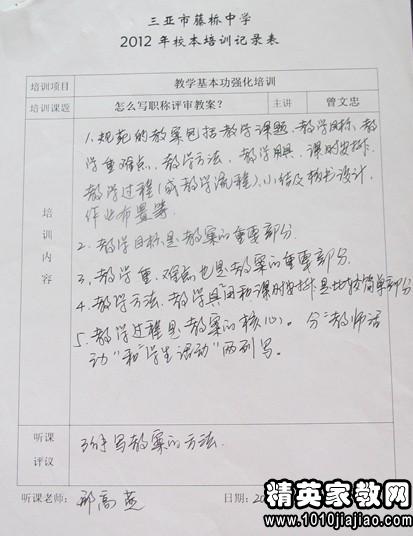 三亚市藤桥中学
2012 年校本培训记录表
培训项目 教学基本功强化培训
培训课题 怎么写职称评审教案? 主讲 曾文忠
培训内容
1. 规范的教案包括教学课题、教学目标、教
学重难点、教学方法、教学用具、课时安排、
教学过程(或教学流程)、小结及板书设计、
作业布置等。
2. 教学目标是教案的重要部分.
3. 教学重、难点也是教案的重要部分.
4. 教学方法、教学具用和课时安排是比较简单部分
5. 教学过程是教案的核心。分“教师活
动”和“学生活动”两列写。
听课评议 了解写教案的方法.
听课老师: 邢高 日期: 20
精英家教网
www.1010jiajiao.com